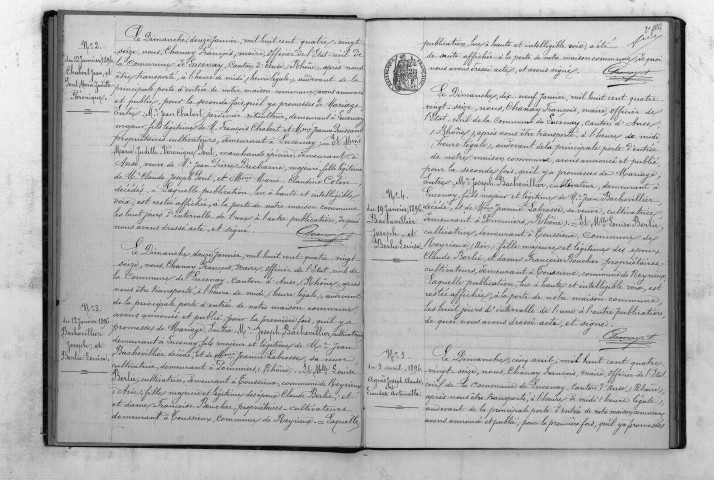 N° 2.
du 12 Janvier 1896
Chalart Jean, et
Pont Marie Judith
Véronique.
Le Dimanche, douze Janvier, mil huit cent quatre vingt
seize, nous, Chanay François, maire, officier de l'Etat civil de
la Commune de Lucenay, Canton d'Anse, (Rhône), après nous
être transporté, à l'heure de midi, heure légale, au devant de la
principale porte d'entrée de notre maison commune, avons annoncé
et publié, pour la seconde fois, qu'il y a promesses de Mariage,
Entre, Mr Jean Chalart, Jardinier, demeurant à Lucenay
majeur, fils légitime de Mr François Chalart et Mme Jeanne
propriétaires cultivateurs, demeurant à Lucenay — Et Mme
Marie Judith Véronique Pont, marchande épicière, demeurant à
Anse, veuve de Mr Jean Pierre Ducharne, majeure, fille légitime
de Mr Claude Joseph Pont, et Mme Marie Claudine Colin,
décédés. — Laquelle publication, lue à haute et intelligible
voix, est restée affichée, à la porte de notre maison commune
les huit jours d'intervalle de l'une à l'autre publication, de quoi
nous avons dressé acte, et signé.
Chanay F
N° 3.
du 12 Janvier 1896
Bachevillier
Joseph, et
Berlie Louise.
Le Dimanche, douze Janvier, mil huit cent quatre vingt
seize, nous, Chanay François, maire, officier de l'Etat civil de
la Commune de Lucenay, Canton d'Anse, Rhône, après
nous être transporté, à l'heure de midi, heure légale, au devant
de la principale porte d'entrée de notre maison commune
avons annoncé et publié pour la première fois, qu'il y a
promesses de Mariage, Entre, Mr Joseph Bachevillier, Cultivateur
demeurant à Lucenay, fils majeur et légitime de Mr Jean
Bachevillier décédé, et de Mme Jeanne Labrosse, sa veuve
cultivatrice, demeurant à Pommiers, (Rhône). — Et, Melle Louise
Berlie, cultivatrice, demeurant à Toussieux, commune de Reyrieux
(Ain), fille majeure et légitime des époux Claude Berlie, et
et dame Françoise Boucher, propriétaires-cultivateurs
demeurant à Toussieux, Commune de Reyrieux — Laquelle
publication, lue à haute et intelligible voix, a été
de suite affichée à la porte de notre maison commune, de quoi
nous avons dressé acte, et avons signé.
Chanay F
N° 4.
du 19 Janvier 1896
Bachevillier
Joseph, et
Berlie Louise.
Le Dimanche, dix neuf Janvier, mil huit cent quatre
vingt seize, nous, Chanay François, maire, officier de
l'Etat civil de la Commune de Lucenay, Canton d'Anse,
(Rhône), après nous être transporté, à l'heure de midi,
heure légale, au devant de la principale porte d'entrée
de notre maison commune, avons annoncé et publié
pour la seconde fois, qu'il y a promesses de Mariage,
Entre, Mr Joseph Bachevillier, cultivateur, demeurant à
Lucenay, fils majeur et légitime de Mr Jean Bachevillier,
décédé, et de Mme Jeanne Labrosse, sa veuve, cultivatrice
demeurant à Pommiers (Rhône). — Et, Melle Louise Berlie,
cultivatrice, demeurant à Toussieux, commune de
Reyrieux (Ain), fille majeure et légitime des époux
Claude Berlie, et dame Françoise Boucher propriétaires-
cultivateurs, demeurant à Toussieux, commune de Reyrieux
Laquelle publication, lue à haute et intelligible voix, est
restée affichée, à la porte de notre maison commune,
les huit jours d'intervalle de l'une à l'autre publication,
de quoi nous avons dressé acte, et signé.
Chanay F
N° 5.
du 5 avril, 1896.
Joseph Claude,
et
Antoinette
Le Dimanche, cinq avril, mil huit cent quatre
vingt seize, nous, Chanay François, maire, officier de l'Etat
civil de la Commune de Lucenay, Canton d'Anse, (Rhône),
après nous être transporté, à l'heure de midi, heure légale,
au devant de la principale porte d'entrée de notre maison commune,
avons annoncé et publié, pour la première fois, qu'il y a promesses